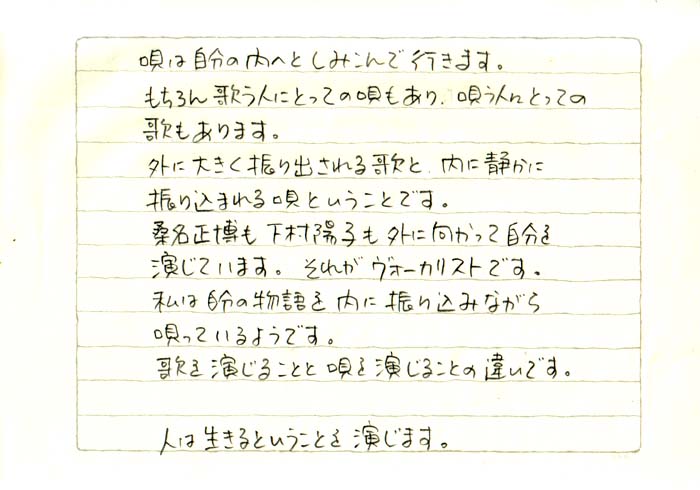 唄は自分の内へとしみこんで行きます。
もちろん歌う人にとっての唄もあり、唄う人にとっての
歌もあります。
外に大きく振り出される歌と、内に静かに
振り込まれる唄ということです。
桑名正博も下村陽子も外に向かって自分を
演じています。それがヴォーカリストです。
私は自分の物語を内に振り込みながら
唄っているようです。
歌を演じることと唄を演じることの違いです。
人は生きるということを演じます。